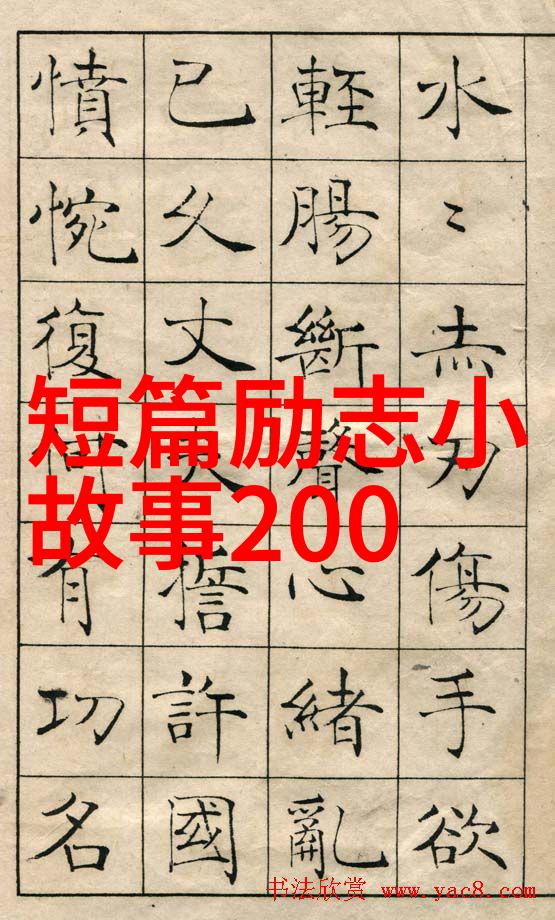 水〻赤刃傷手欲
輕腸斷聲心緒亂
已久丈夫誓許國
憤惋復何有功名
短篇励志小
故事200
书法欣赏 www.yac8.com